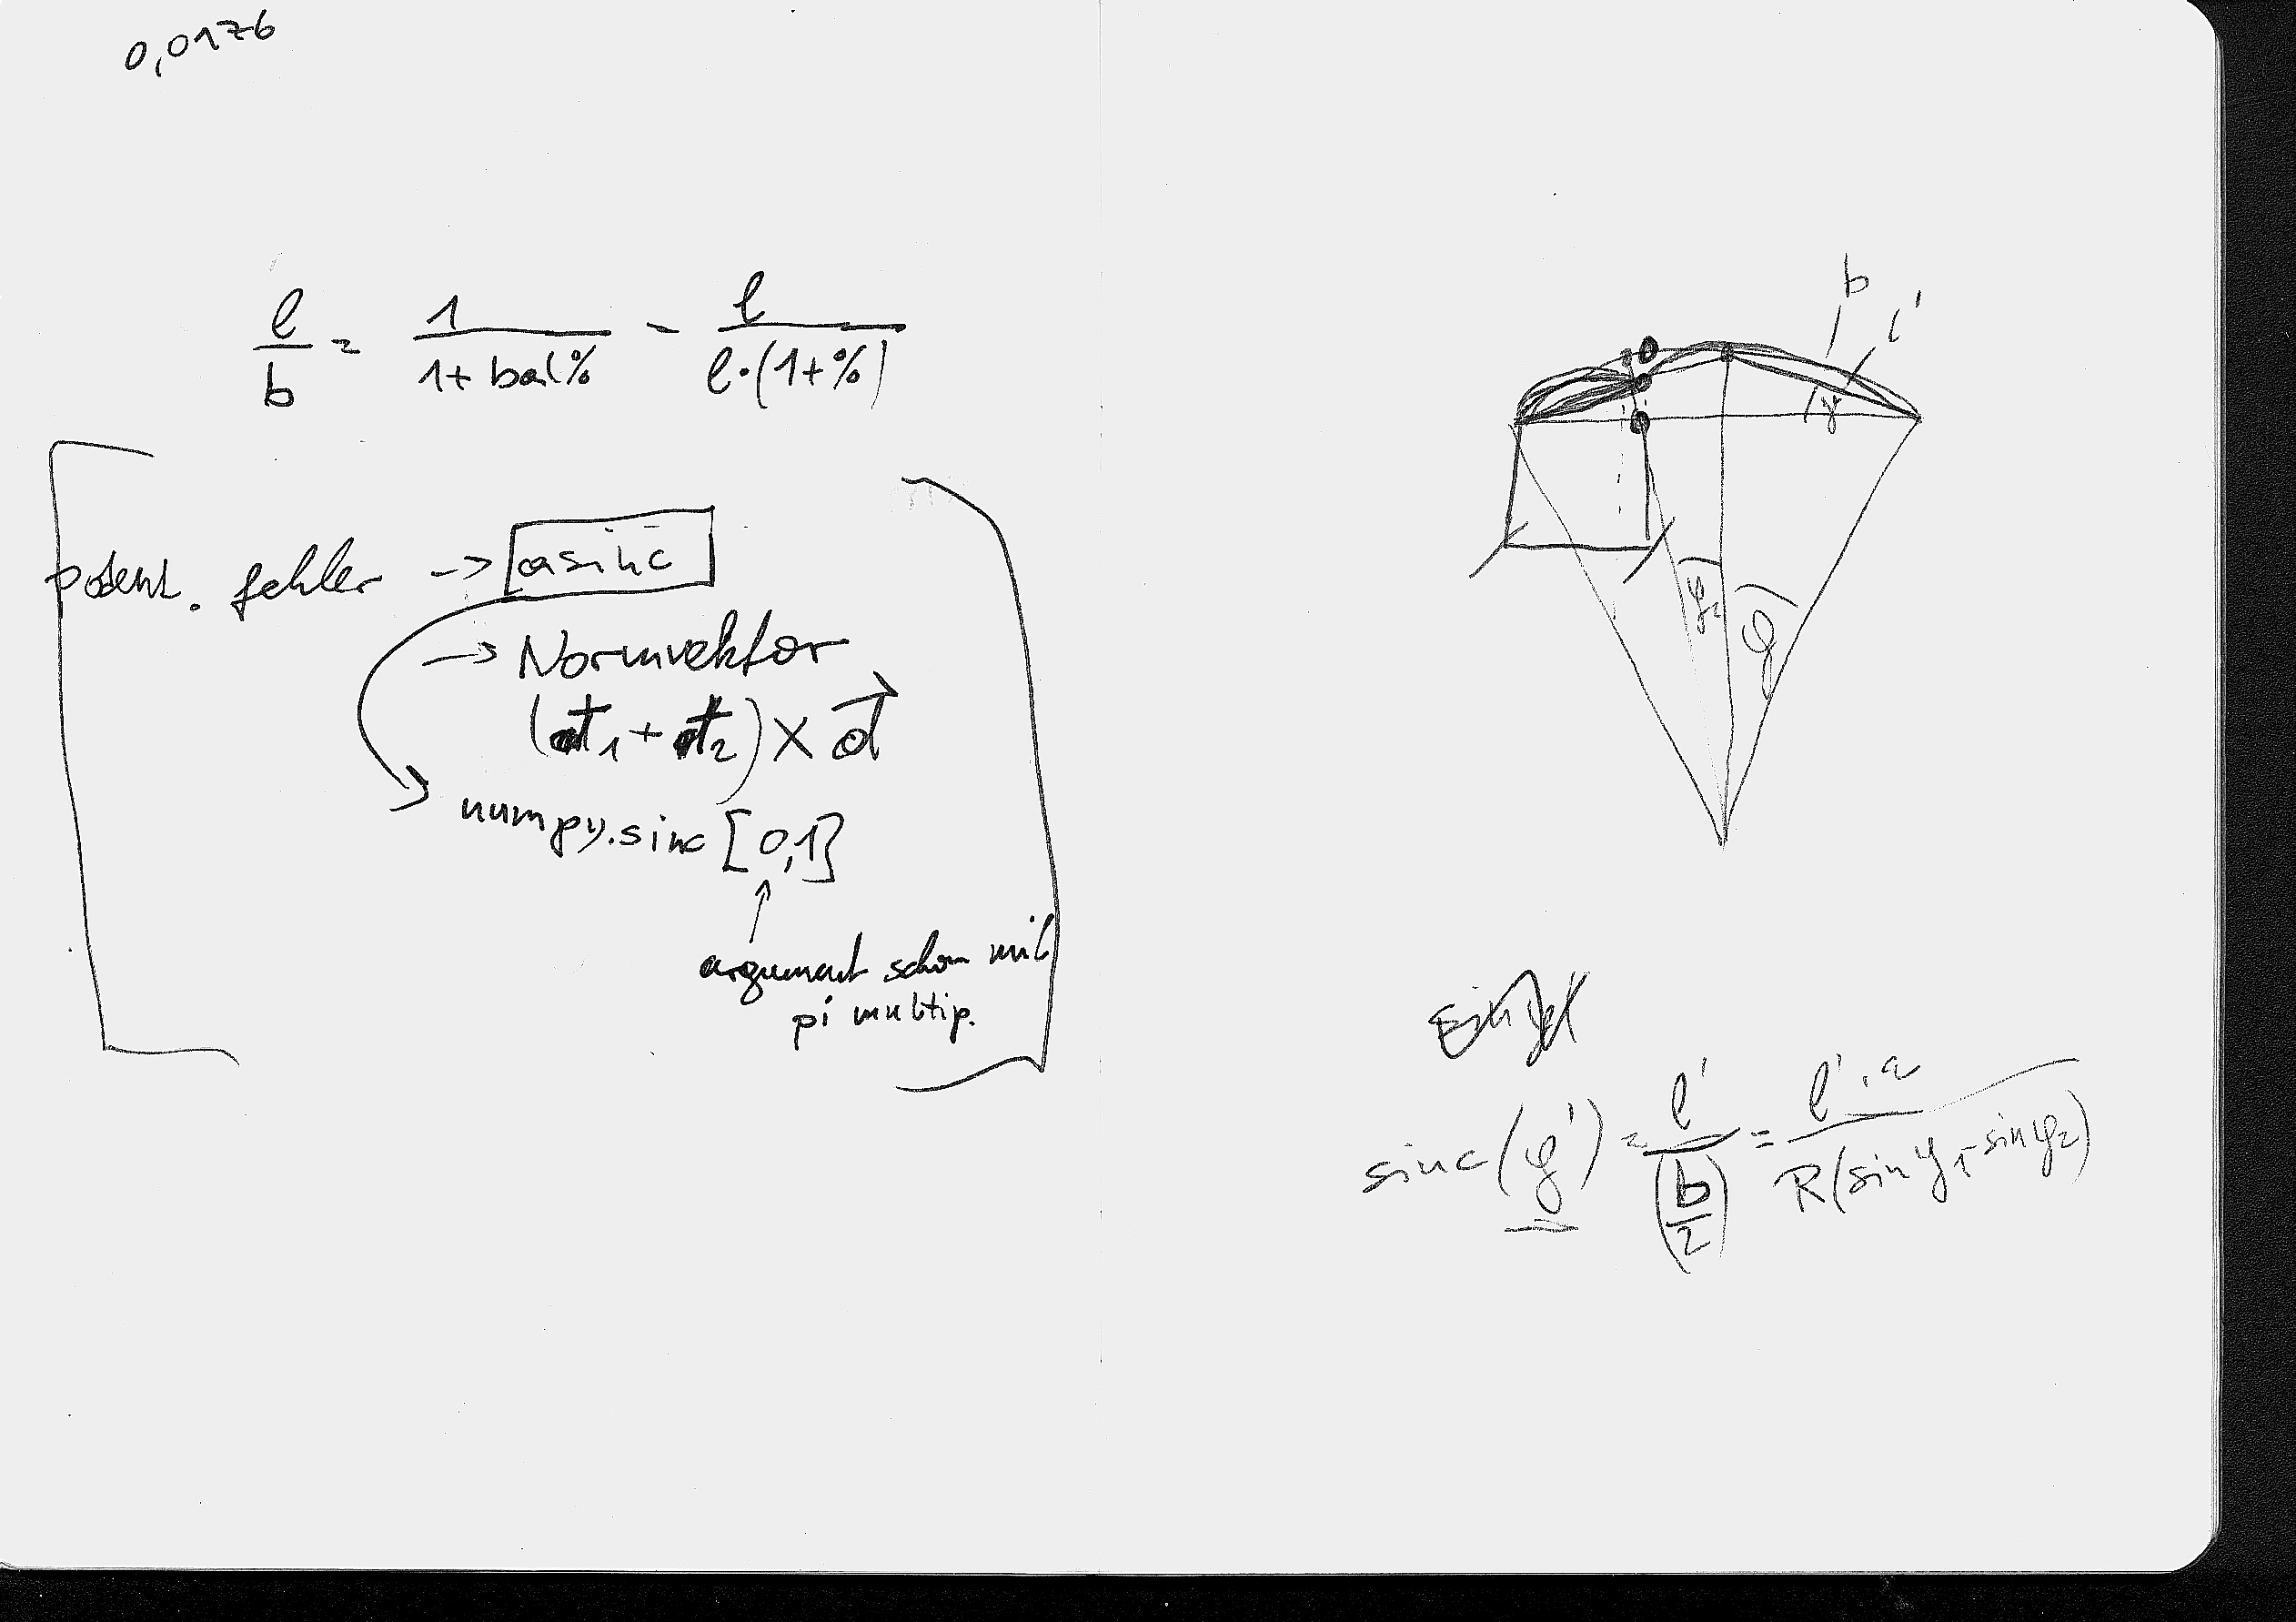 0,0176
l/b = 1/(1+ bal%) = l/(l·(1+%))
potent. fehler -> asinc
-> Normvektor
(t₁ + t₂) × d⃗
numpy.sinc [0,1]
↑
argument schon mit
pi multip.
b
l'
γ
φ₂
φ
sinc(φ') = l'/(b/2) = l'·2/(R(sinφ₁-sinφ₂))